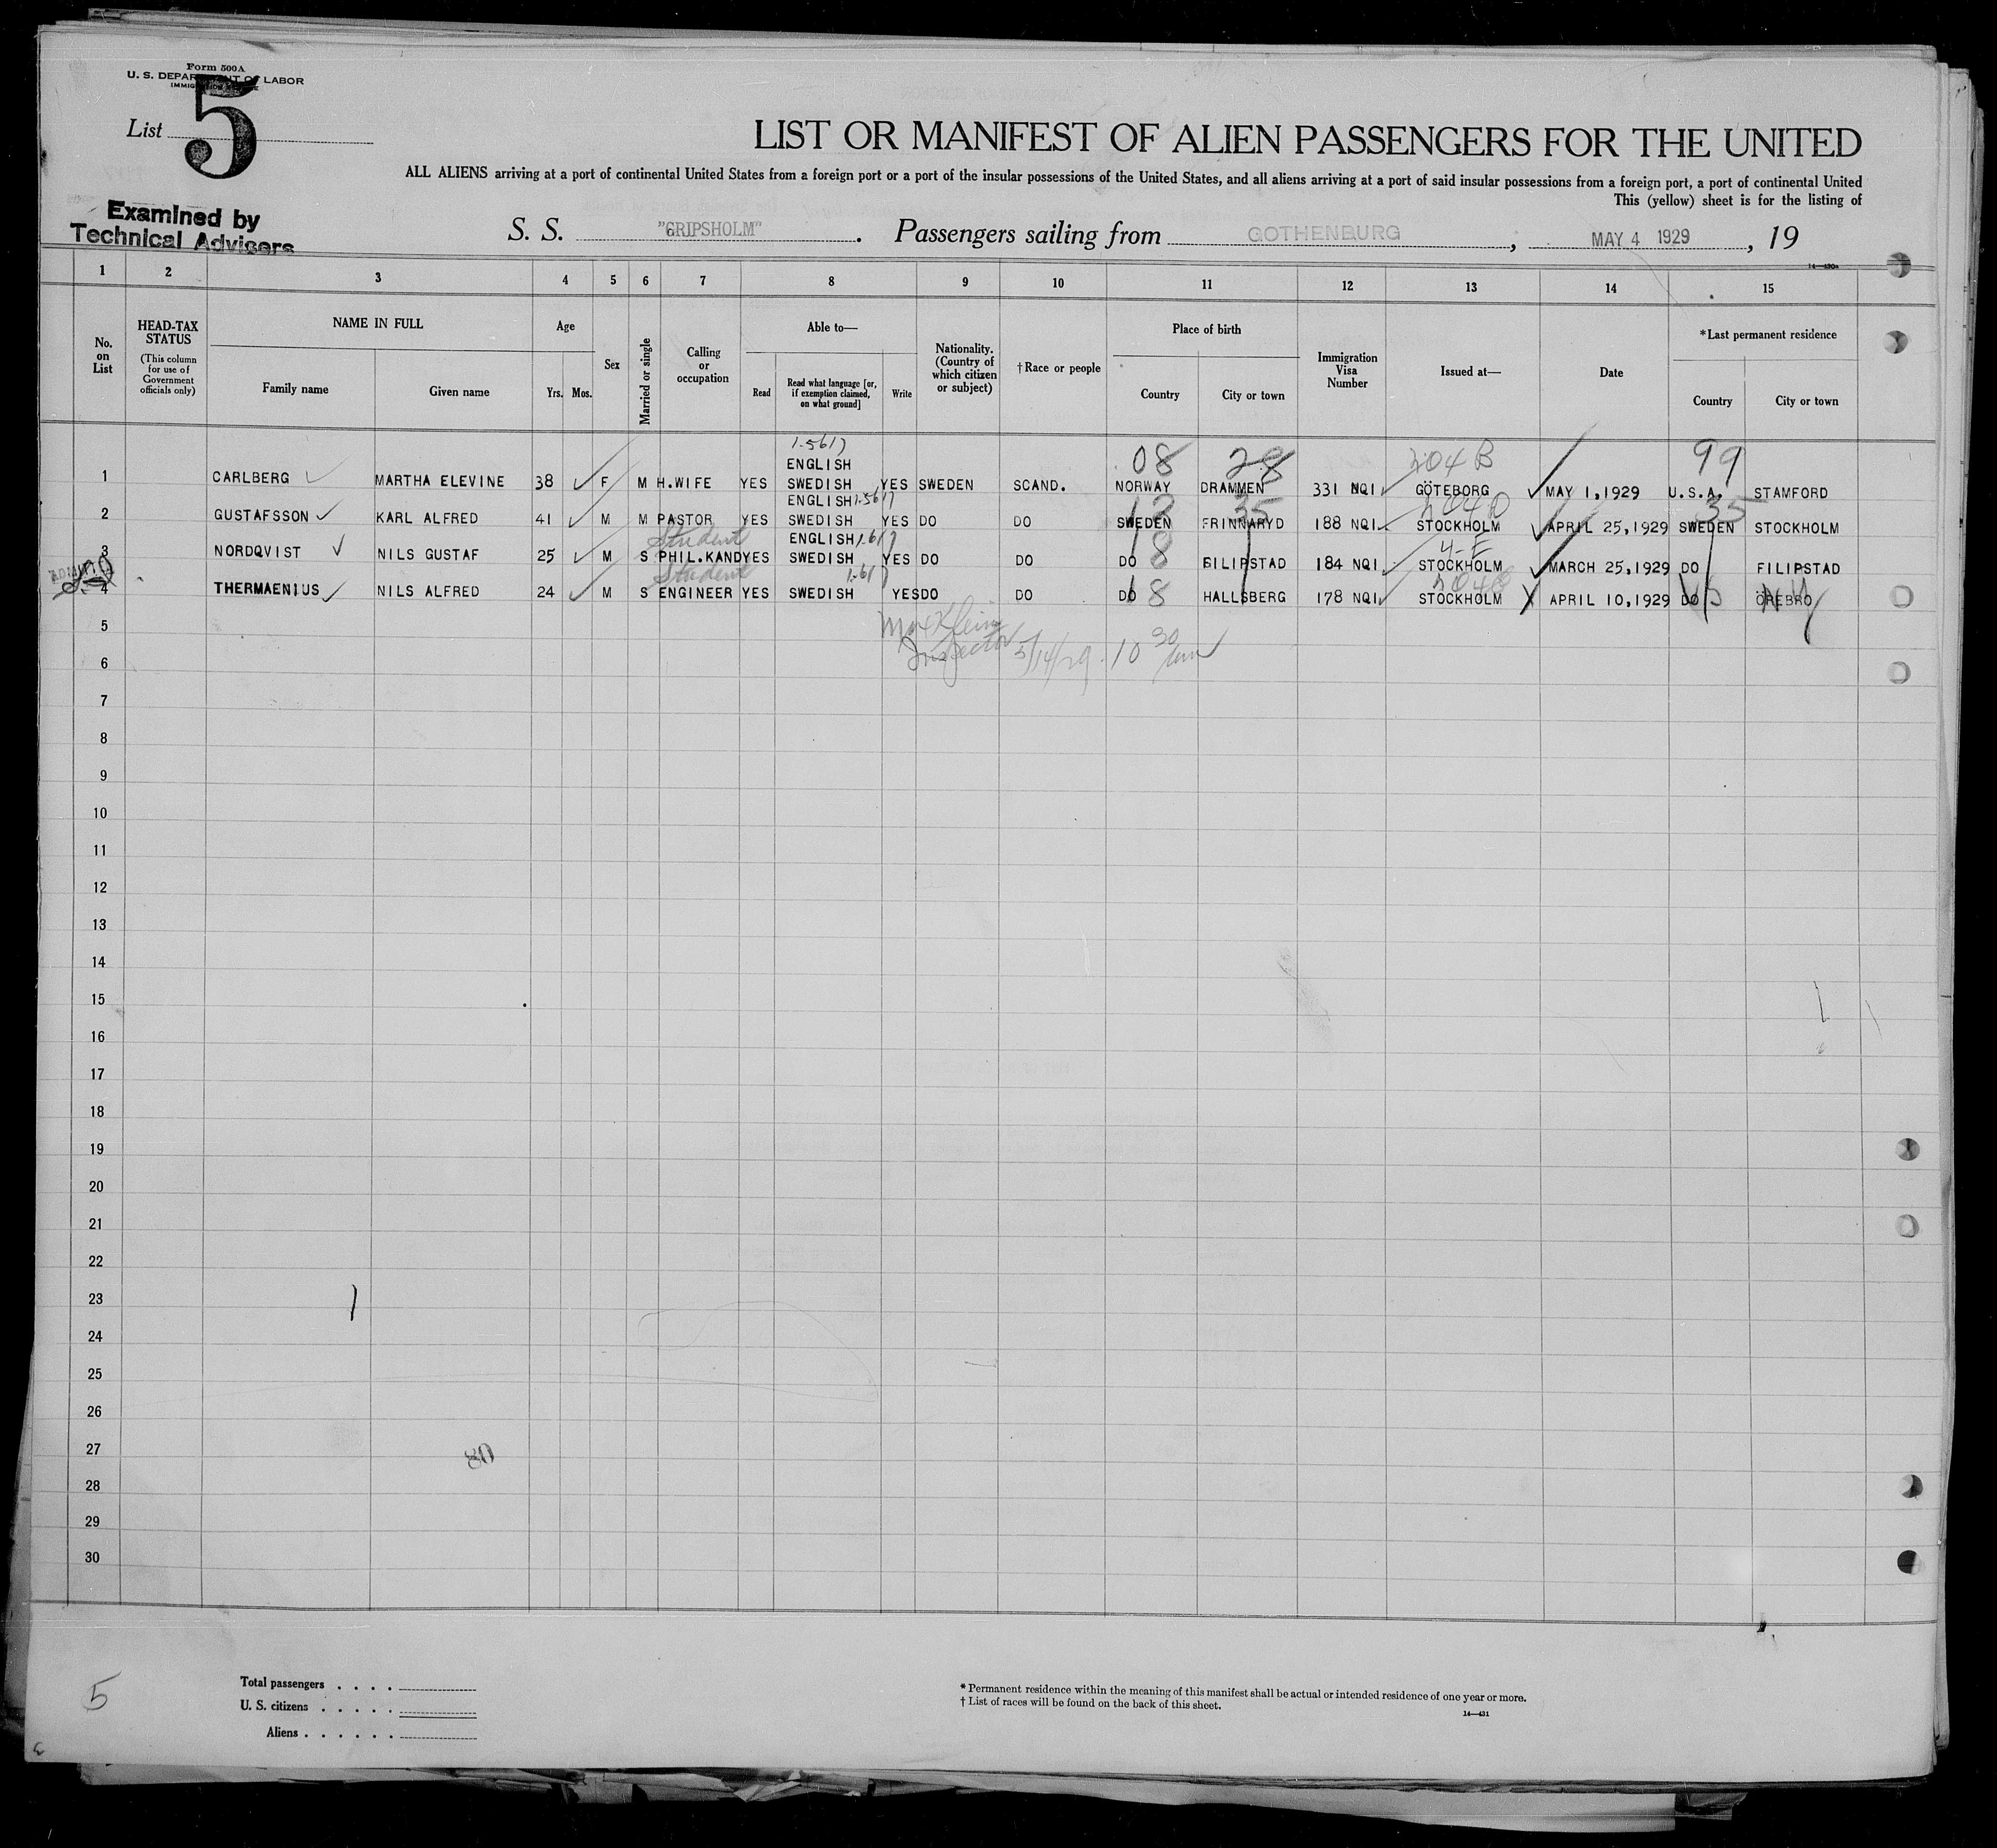 Form 500A
U. S. DEPARTMENT OF LABOR
List 5
LIST OR MANIFEST OF ALIEN PASSENGERS FOR THE UNITED
ALL ALIENS arriving at a port of continental United States from a foreign port or a port of the insular possessions of the United States, and all aliens arriving at a port of said insular possessions from a foreign port, a port of continental United
This (yellow) sheet is for the listing of
Examined by
Technical Advisers
S. S. "GRIPSHOLM". Passengers sailing from GOTHENBURG, MAY 4 1929, 19
14—430a
1 2 3 4 5 6 7 8 9 10 11 12 13 14 15
No. on List
HEAD-TAX STATUS (This column for use of Government officials only)
NAME IN FULL
Family name
Given name
Age
Yrs. Mos.
Sex
Married or single
Calling or occupation
Able to—
Read
Read what language [or, if exemption claimed, on what ground]
Write
Nationality. (Country of which citizen or subject)
†Race or people
Place of birth
Country
City or town
Immigration Visa Number
Issued at—
Date
*Last permanent residence
Country
City or town
1.5617 08 28 204 B 99
1 CARLBERG MARTHA ELEVINE 38 F M H.WIFE YES ENGLISH SWEDISH YES SWEDEN SCAND. NORWAY DRAMMEN 331 NQI GÖTEBORG MAY 1,1929 U.S.A. STAMFORD
2 GUSTAFSSON KARL ALFRED 41 M M PASTOR YES ENGLISH SWEDISH YES DO DO SWEDEN FRINNARYD 188 NQI STOCKHOLM APRIL 25,1929 SWEDEN STOCKHOLM
Student
3 NORDQVIST NILS GUSTAF 25 M S PHIL.KAND YES ENGLISH SWEDISH YES DO DO DO 8 FILIPSTAD 184 NQI 4-E STOCKHOLM MARCH 25,1929 DO FILIPSTAD
Student
4 THERMAENIUS NILS ALFRED 24 M S ENGINEER YES SWEDISH YES DO DO DO 8 HALLSBERG 178 NQI STOCKHOLM APRIL 10,1929 DO ÖREBRO
5
Inspector 5/14/29. 10 30
6
7
8
9
10
11
12
13
14
15
16
17
18
19
20
21
22
23
24
25
26
27
28
29
30
5
Total passengers . . . .
U. S. citizens . . . . .
Aliens . . . . . .
* Permanent residence within the meaning of this manifest shall be actual or intended residence of one year or more.
† List of races will be found on the back of this sheet.
14—431